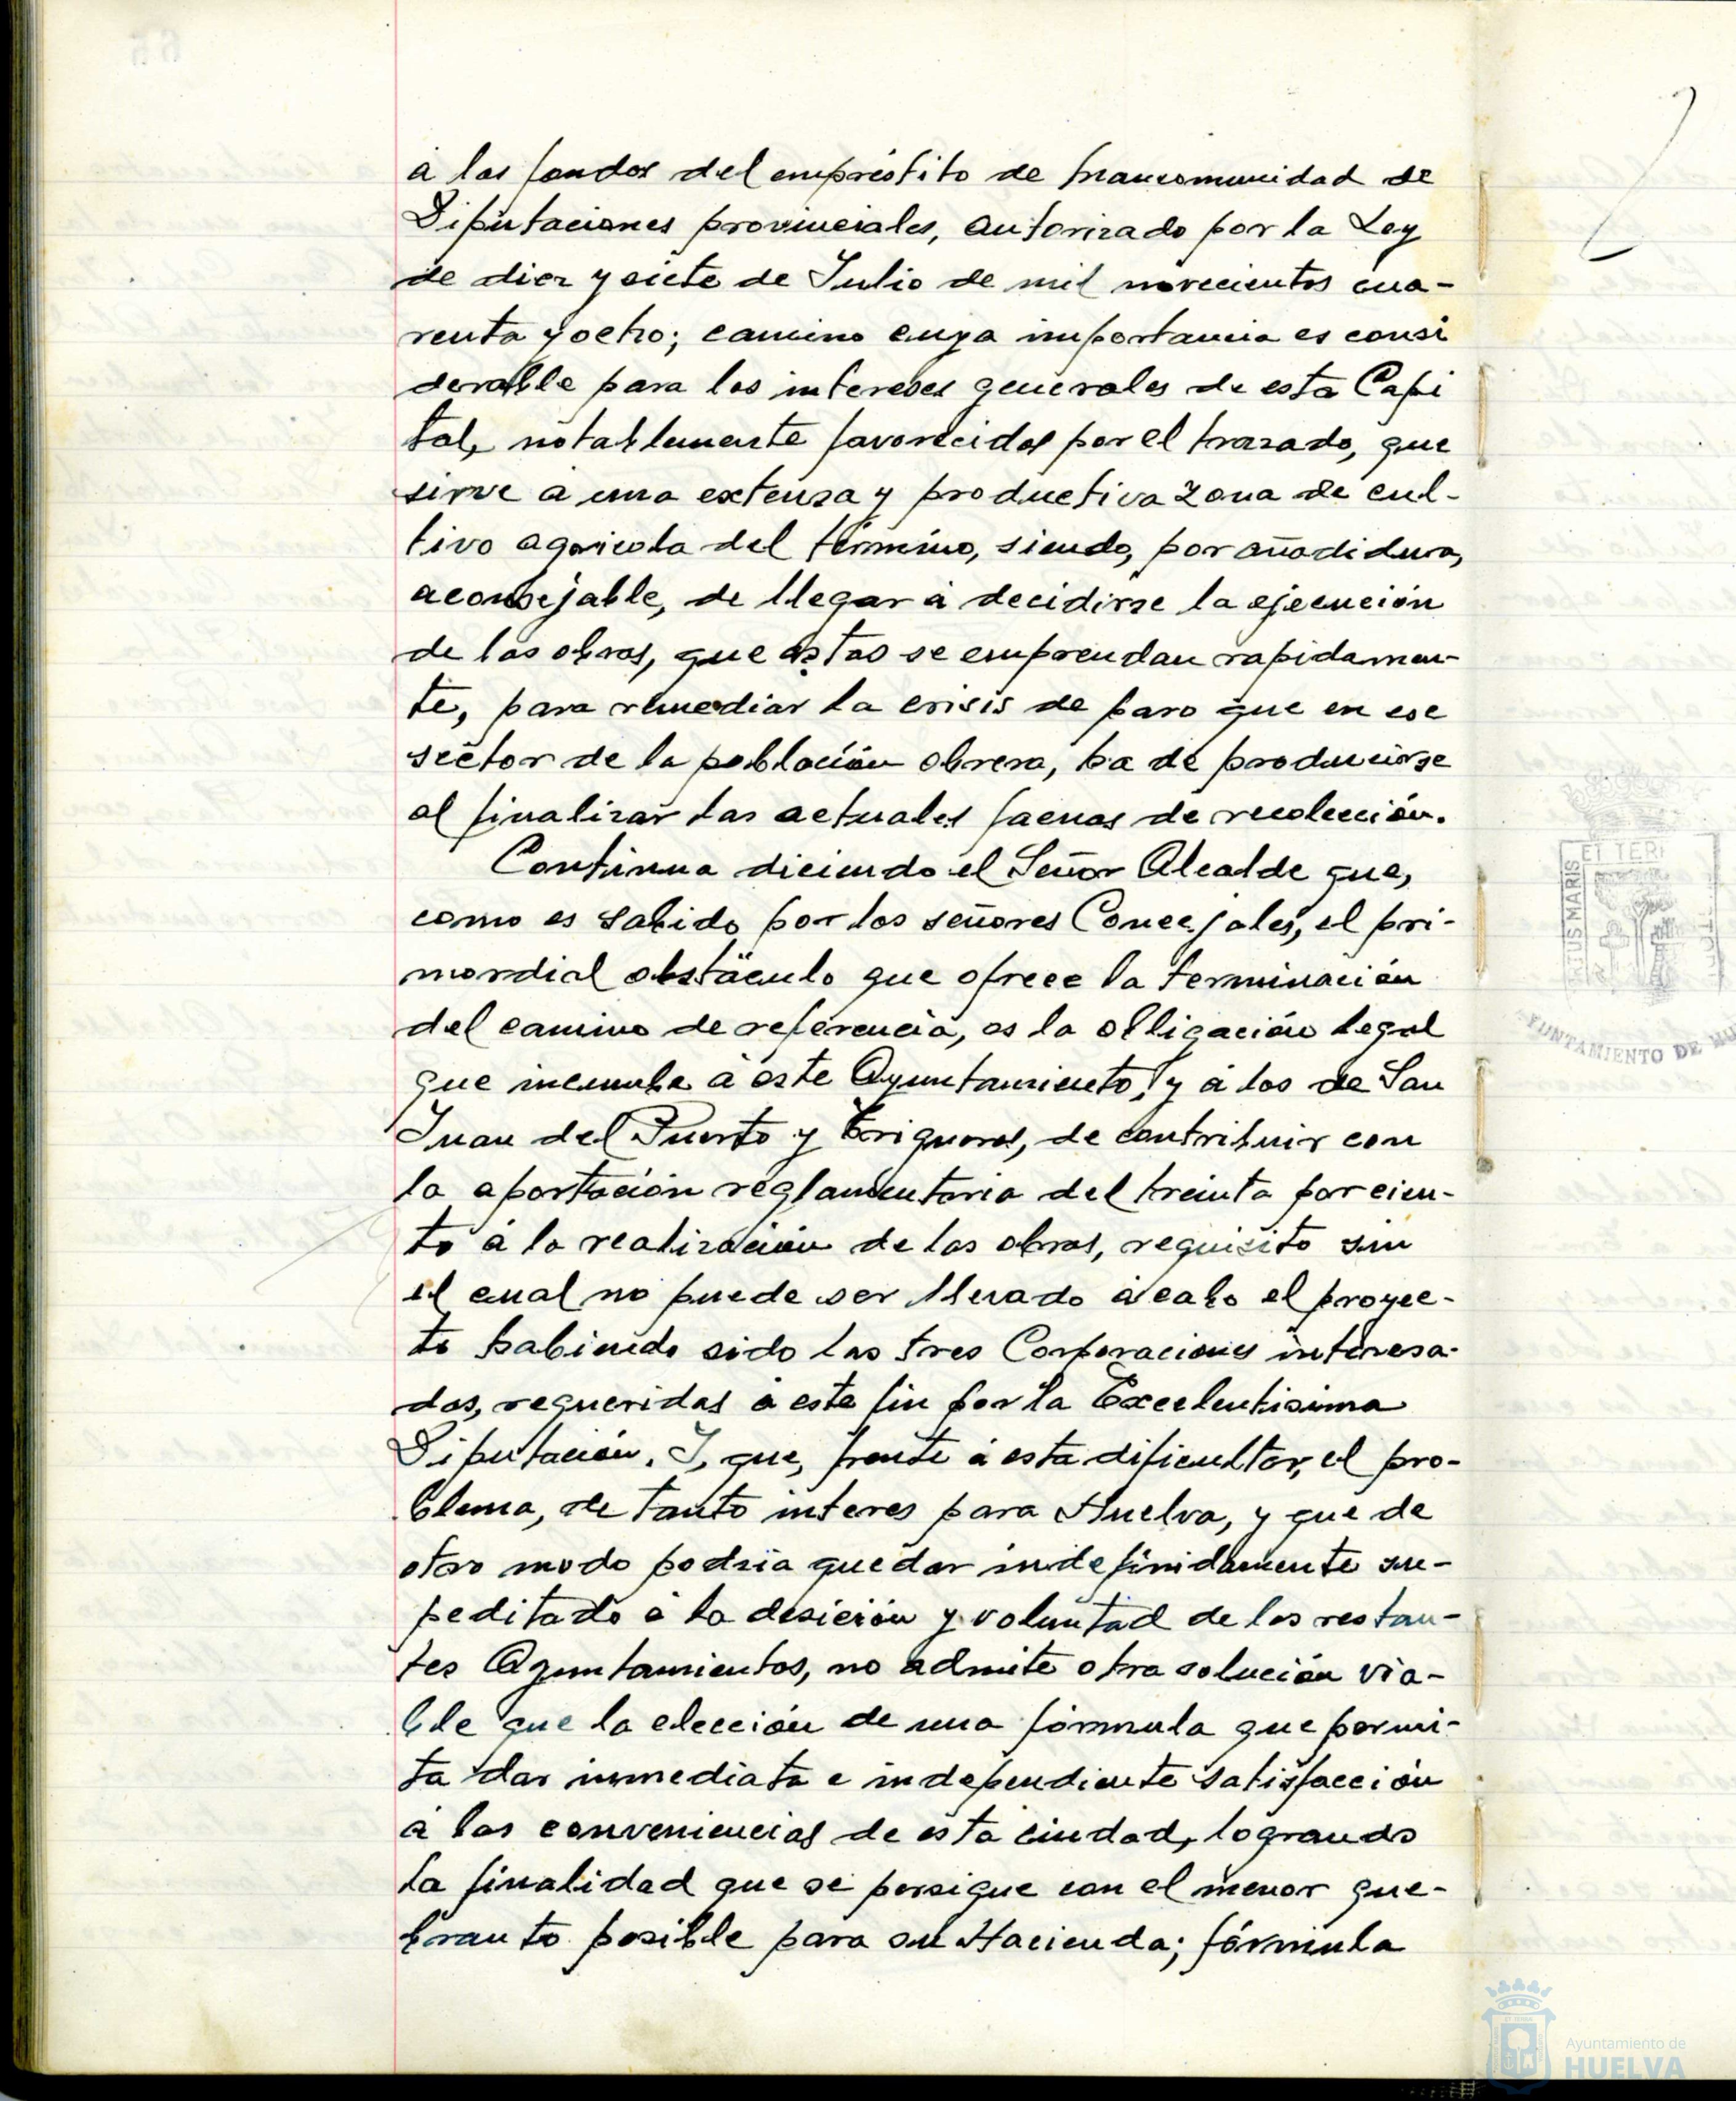 á los fondos del empréstito de mancomunidad de
Diputaciones provinciales, autorizado por la Ley
de diez y siete de Julio de mil novecientos cua-
renta y ocho; camino cuya importancia es consi
derable para los intereses generales de esta Capi
tal, notablemente favorecidos por el trazado, que
sirve á una extensa y productiva zona de cul-
tivo agricola del término, siendo, por añadidura,
aconsejable, de llegar á decidirse la ejecución
de las obras, que estas se emprendan rapidamen-
te, para remediar la crisis de paro que en ese
sector de la población obrera, ha de producirse
al finalizar las actuales faenas de recolección.
Continua diciendo el Señor Alcalde que,
como es sabido por los señores Concejales, el pri-
mordial obstáculo que ofrece la terminación
del camino de referencia, es la obligación legal
que incumbe á este Ayuntamiento, y á los de San
Juan del Puerto y Trigueros, de contribuir con
la aportación reglamentaria del treinta por cien-
to á la realización de las obras, requisito sin
el cual no puede ser llevado á cabo el proyec-
to habiendo sido las tres Corporaciones interesa-
das, requeridas á este fin por la Excelentisima
Diputación. Y, que, frente á esta dificultar, el pro-
blema, de tanto interes para Huelva, y que de
otro modo podria quedar indefinidamente su-
peditado á la desición y voluntad de los restan-
tes Ayuntamientos, no admite otra solución via-
ble que la elección de una fórmula que permi-
ta dar inmediata e independiente satisfacción
á las conveniencias de esta ciudad, logrando
la finalidad que se persigue con el menor que-
branto posible para su Hacienda; fórmula
ET TERR
RTUS MARIS
AYUNTAMIENTO DE HU
Ayuntamiento de
HUELVA